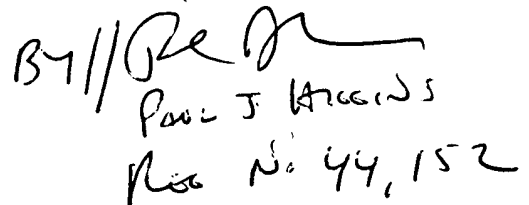 By//
Paul J Higgins
Reg No 44,152